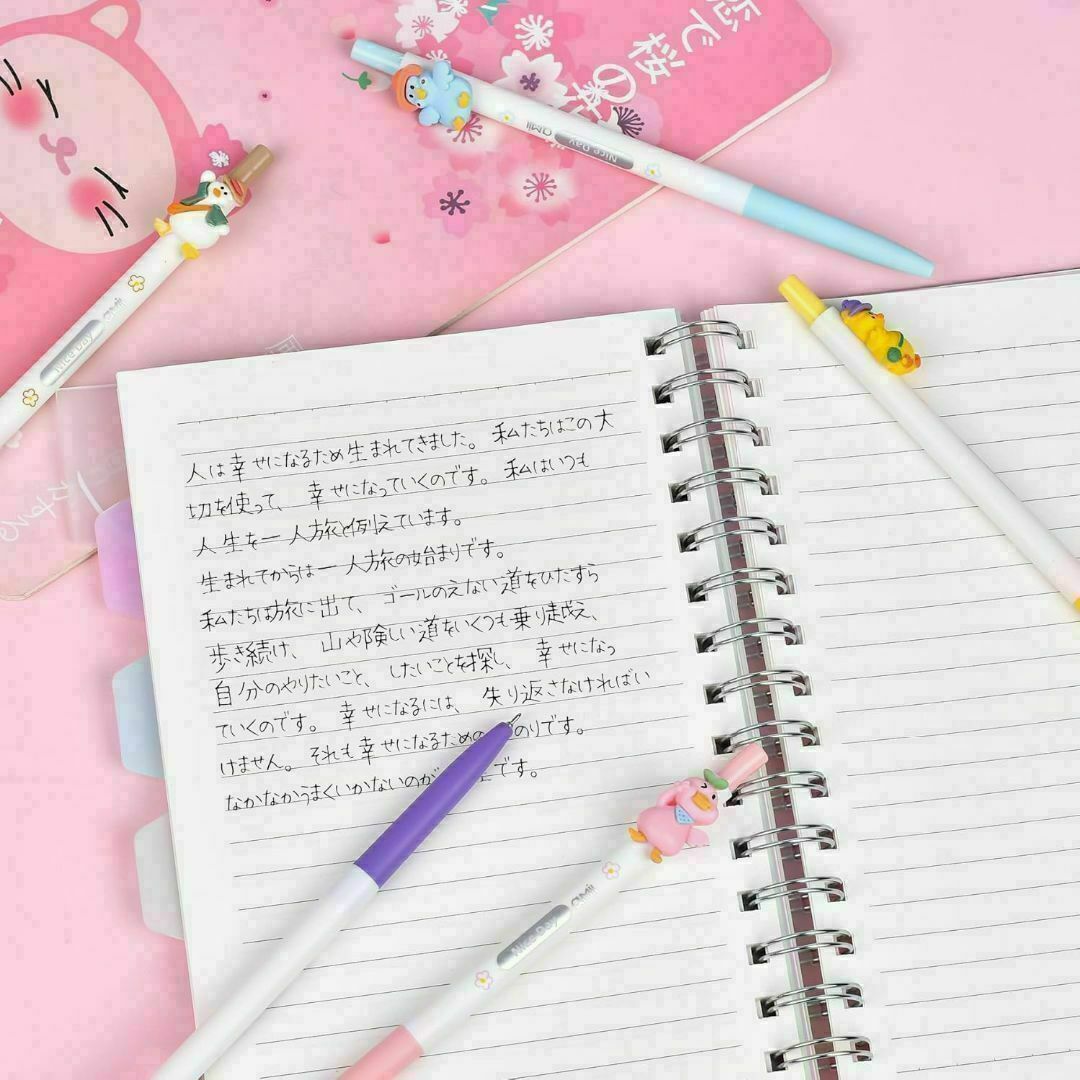 恋で桜の
amii Nice Day
Nice Day amii
人は幸せになるため生まれてきました。私たちはこの大
切を使って、幸せになっていくのです。私はいつも
人生を一人旅と例えています。
生まれてからは一人旅の始まりです。
私たちは旅に出て、ゴールのえない道をひたすら
歩き続け、山や険しい道をいくつも乗り越え、
自分のやりたいこと、したいことを探し、幸せになっ
ていくのです。幸せになるには、失り返さなければい
けません。それも幸せになるための のりです。
なかなかうまくいかないのが です。
Nice Day amii